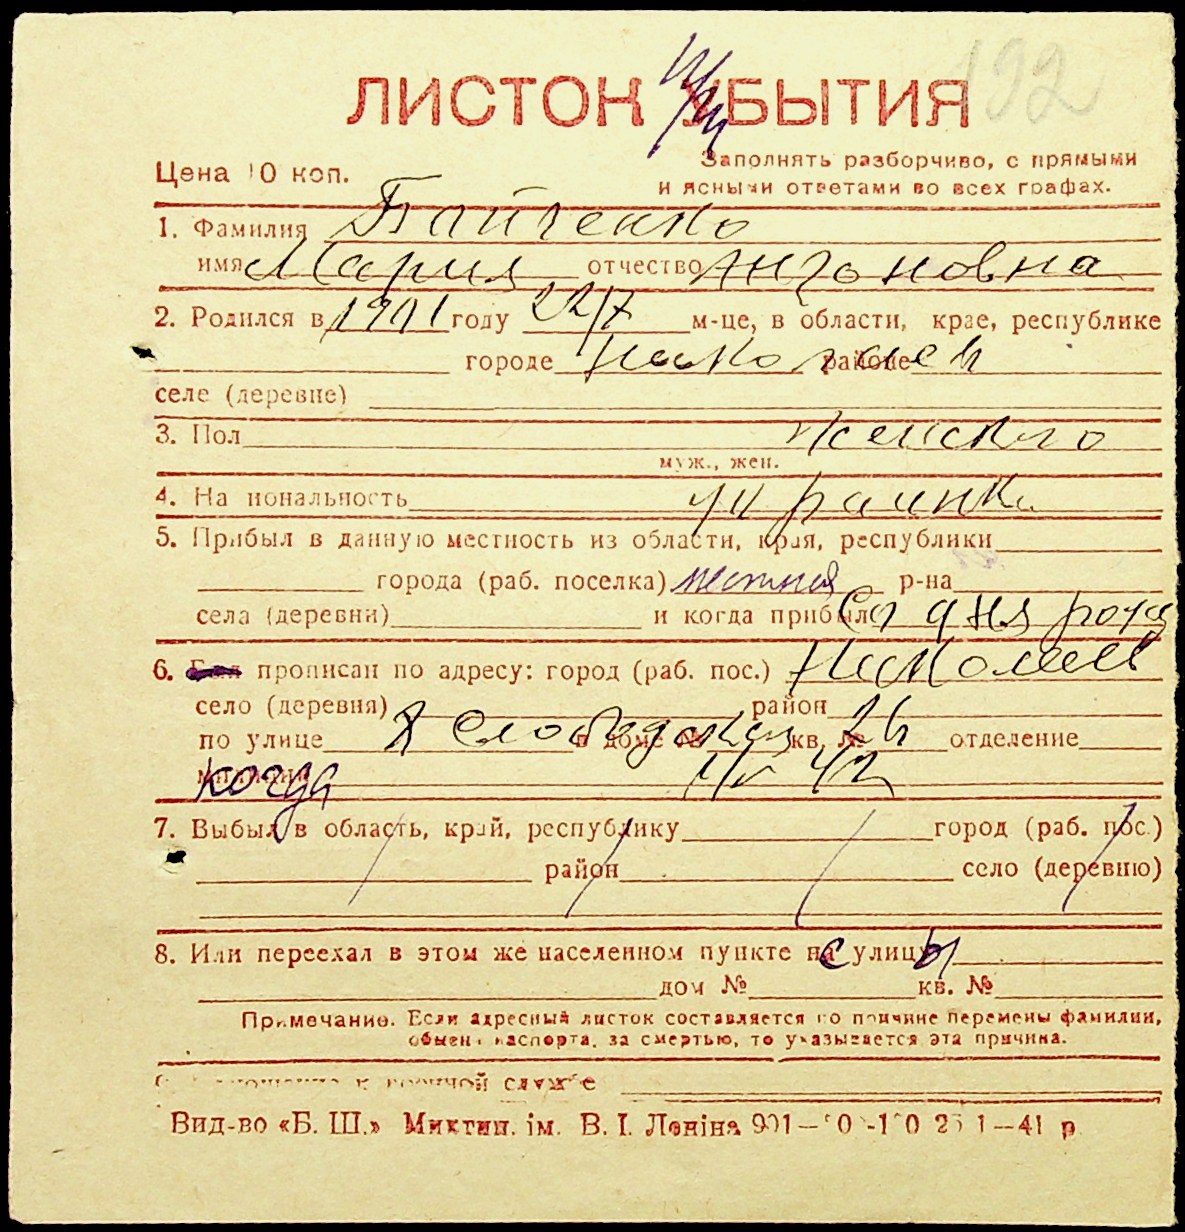 192
ЛИСТОК УБЫТИЯ
Цена 10 коп.
Заполнять разборчиво, с прямыми
и ясными ответами во всех графах.
1. Фамилия Байченко
имя Мария отчество Антоновна
2. Родился в 1901 году 22/7 м-це, в области, крае, республике
городе Николаев районе
селе (деревне)
3. Пол женского
муж., жен.
4. Национальность украинка
5. Прибыл в данную местность из области, края, республики
города (раб. поселка) местная р-на
села (деревни) и когда прибыл Со дня рожд
6. прописан по адресу: город (раб. пос.) Николаев
село (деревня) район
по улице 8 Слободская в доме № кв. № 26 отделение
милиции когда 42
7. Выбыл в область, край, республику город (раб. пос.)
район село (деревню)
8. Или переехал в этом же населенном пункте на с улицы
дом № кв. №
Примечание. Если адресный листок составляется по причине перемены фамилии,
обмена паспорта, за смертью, то указывается эта причина.
к военной службе
Вид-во «Б. Ш.» Миктип. ім. В. І. Леніна